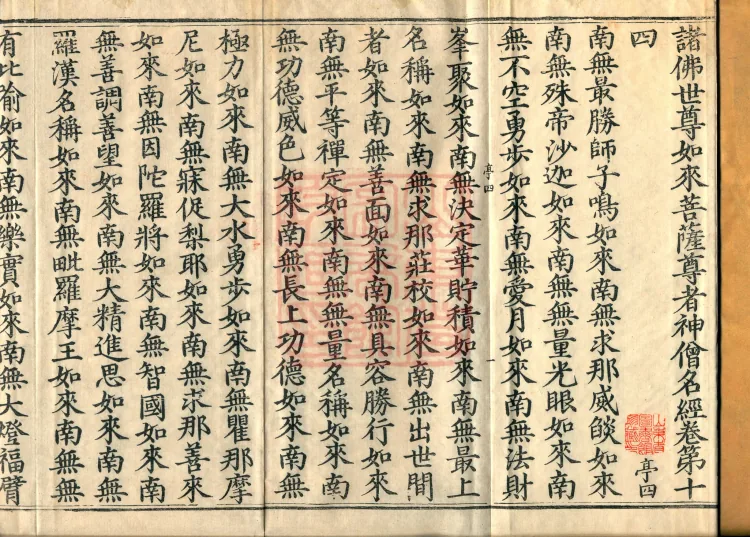 諸佛世尊如來菩薩尊者神僧名經卷第十
四
亭四
南無最勝師子鳴如來南無求那威燄如來
南無殊帝沙迦如來南無無量光眼如來南
無不空勇步如來南無愛月如來南無法財
亭四 一
峯聚如來南無決定華貯積如來南無最上
名稱如來南無求那莊校如來南無出世間
者如來南無善面如來南無具容勝行如來
南無平等禪定如來南無無量名稱如來南
無功德威色如來南無長上功德如來南無
極力如來南無大水勇步如來南無瞿那摩
尼如來南無寐促梨耶如來南無求那善來
如來南無因陀羅將如來南無智國如來南
無善調善望如來南無大精進思如來南無
羅漢名稱如來南無毗羅摩王如來南無無
有比喻如來南無樂實如來南無大燈福臂